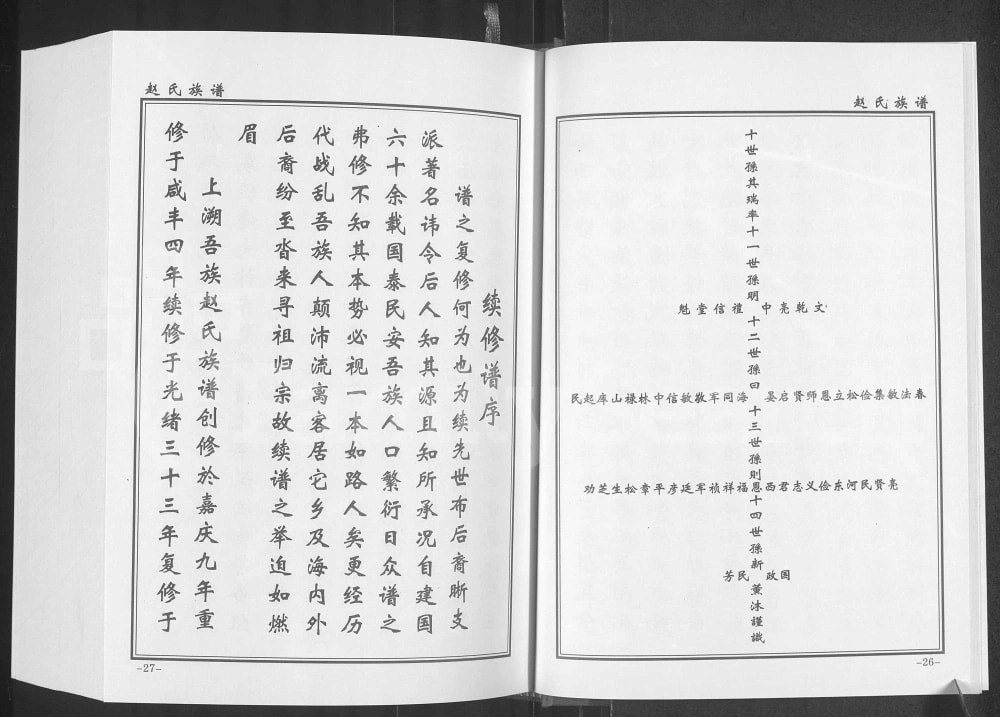 赵氏族谱
十世孫其瑞率十一世孫明
文乾亮中 禮信堂魁
十二世孫曰
春法敏集俭松立恩师贤启晏 海同军敬敏信中林禄山库起民
十三世孫則
亮贤民河东俭义志君西恩福祥祯军廷彦平章松生芝功
十四世孫新
国政 民芳
薰沐謹識
-26-
赵氏族谱
续修谱序
谱之复修何为也为续先世布后裔晰支
派著名讳令后人知其源且知所承况自建国
六十余载国泰民安吾族人口繁衍日众谱之
弗修不知其本势必视一本如路人矣更经历
代战乱吾族人颠沛流离客居它乡及海内外
后裔纷至沓来寻祖归宗故续谱之举迫如燃
眉
上溯吾族赵氏族谱创修於嘉庆九年重
修于咸丰四年续修于光绪三十三年复修于
-27-